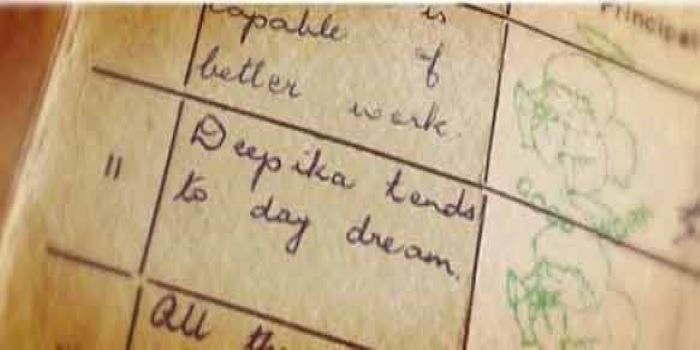 capable is
of
better work.
Principal
II
Deepika tends
to day dream.
All